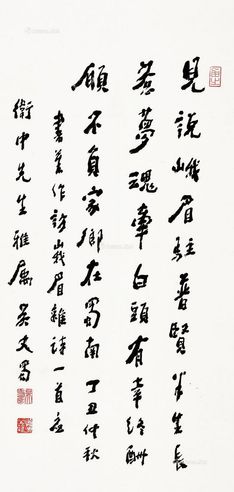 見說峨眉駐普賢半生長
惹夢魂牽白頭有幸終酬
願不負家鄉在蜀南丁丑仲秋
書舊作訪峨眉雜詩一首應
衛中先生雅屬 吳丈蜀